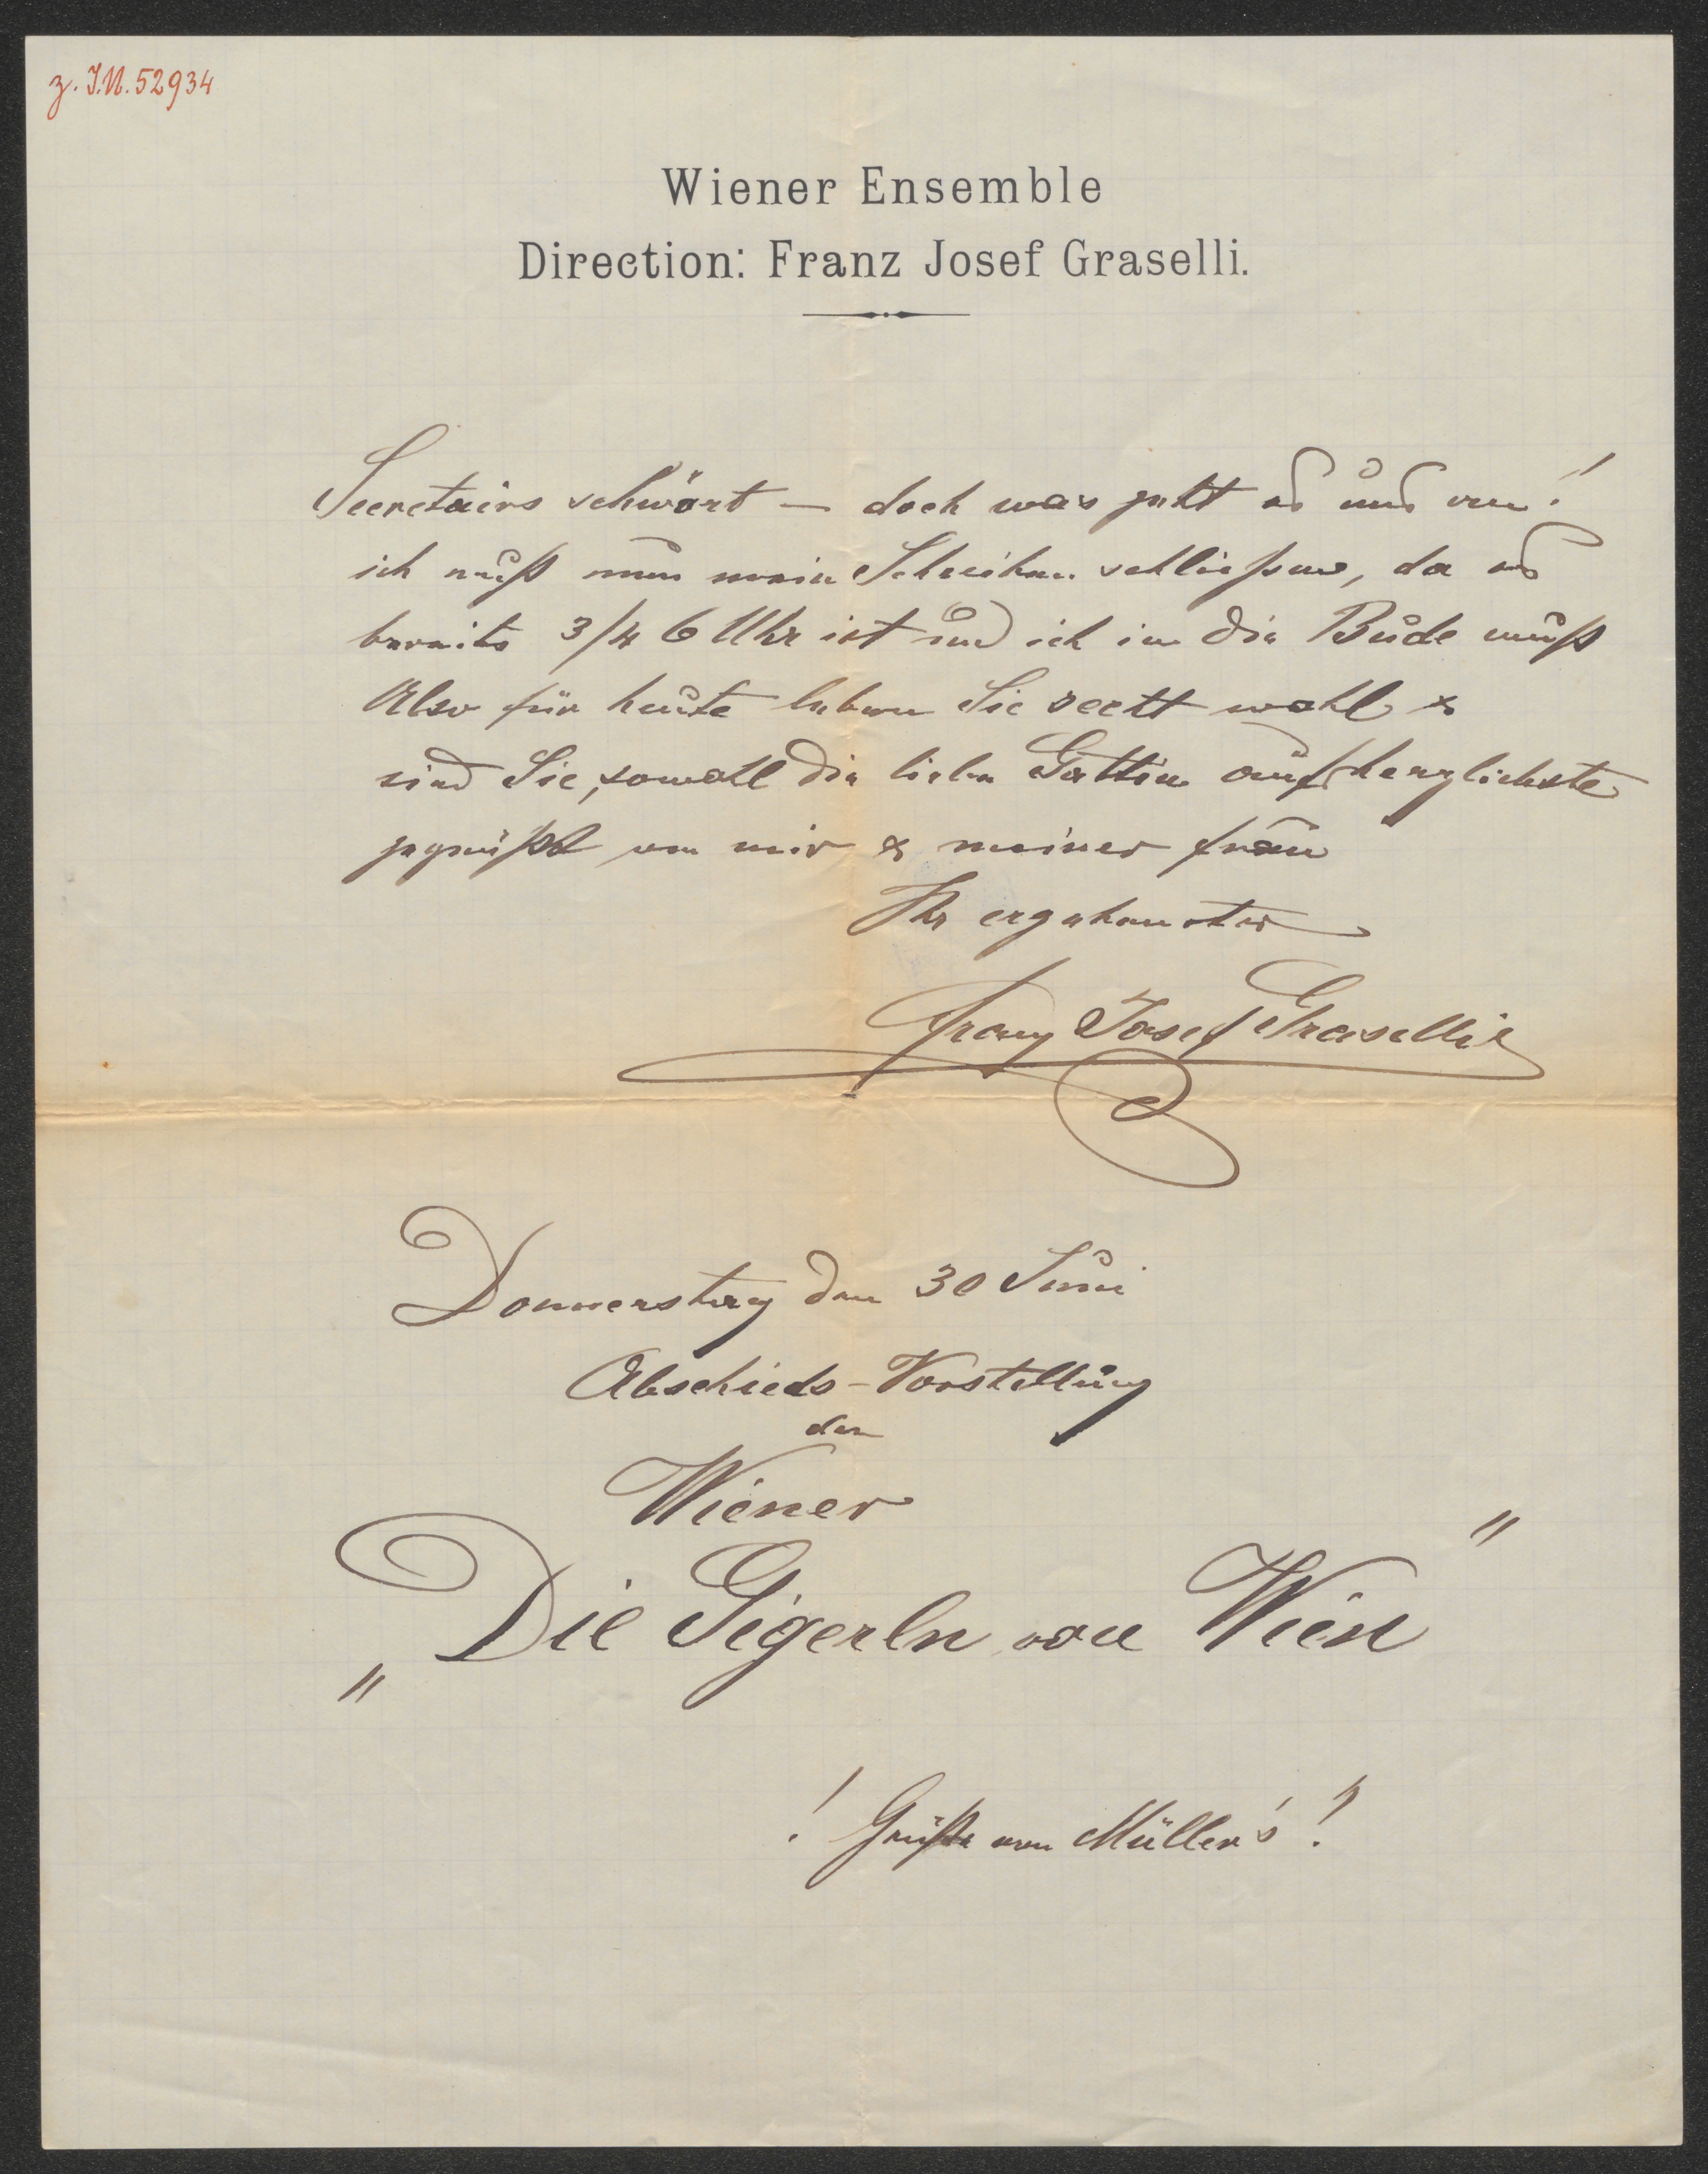 z. I.N. 52934
Wiener Ensemble
Direction: Franz Josef Graselli.
Secretairs schwört — doch was geht es uns an!
ich muß nun mein Schreiben schließen, da es
bereits 3/4 6 Uhr ist und ich in die Bude muß
Also für heute leben Sie recht wohl &
sind Sie, sowohl die liebe Gattin aufs herzlichste
gegrüßt von mir & meiner Frau
Ihr ergebenster
Franz Josef Graselli
Donnerstag den 30 Juni
Abschieds-Vorstellung
der
Wiener
„Die Gigerln von Wien"
! Grüße von Müller's !